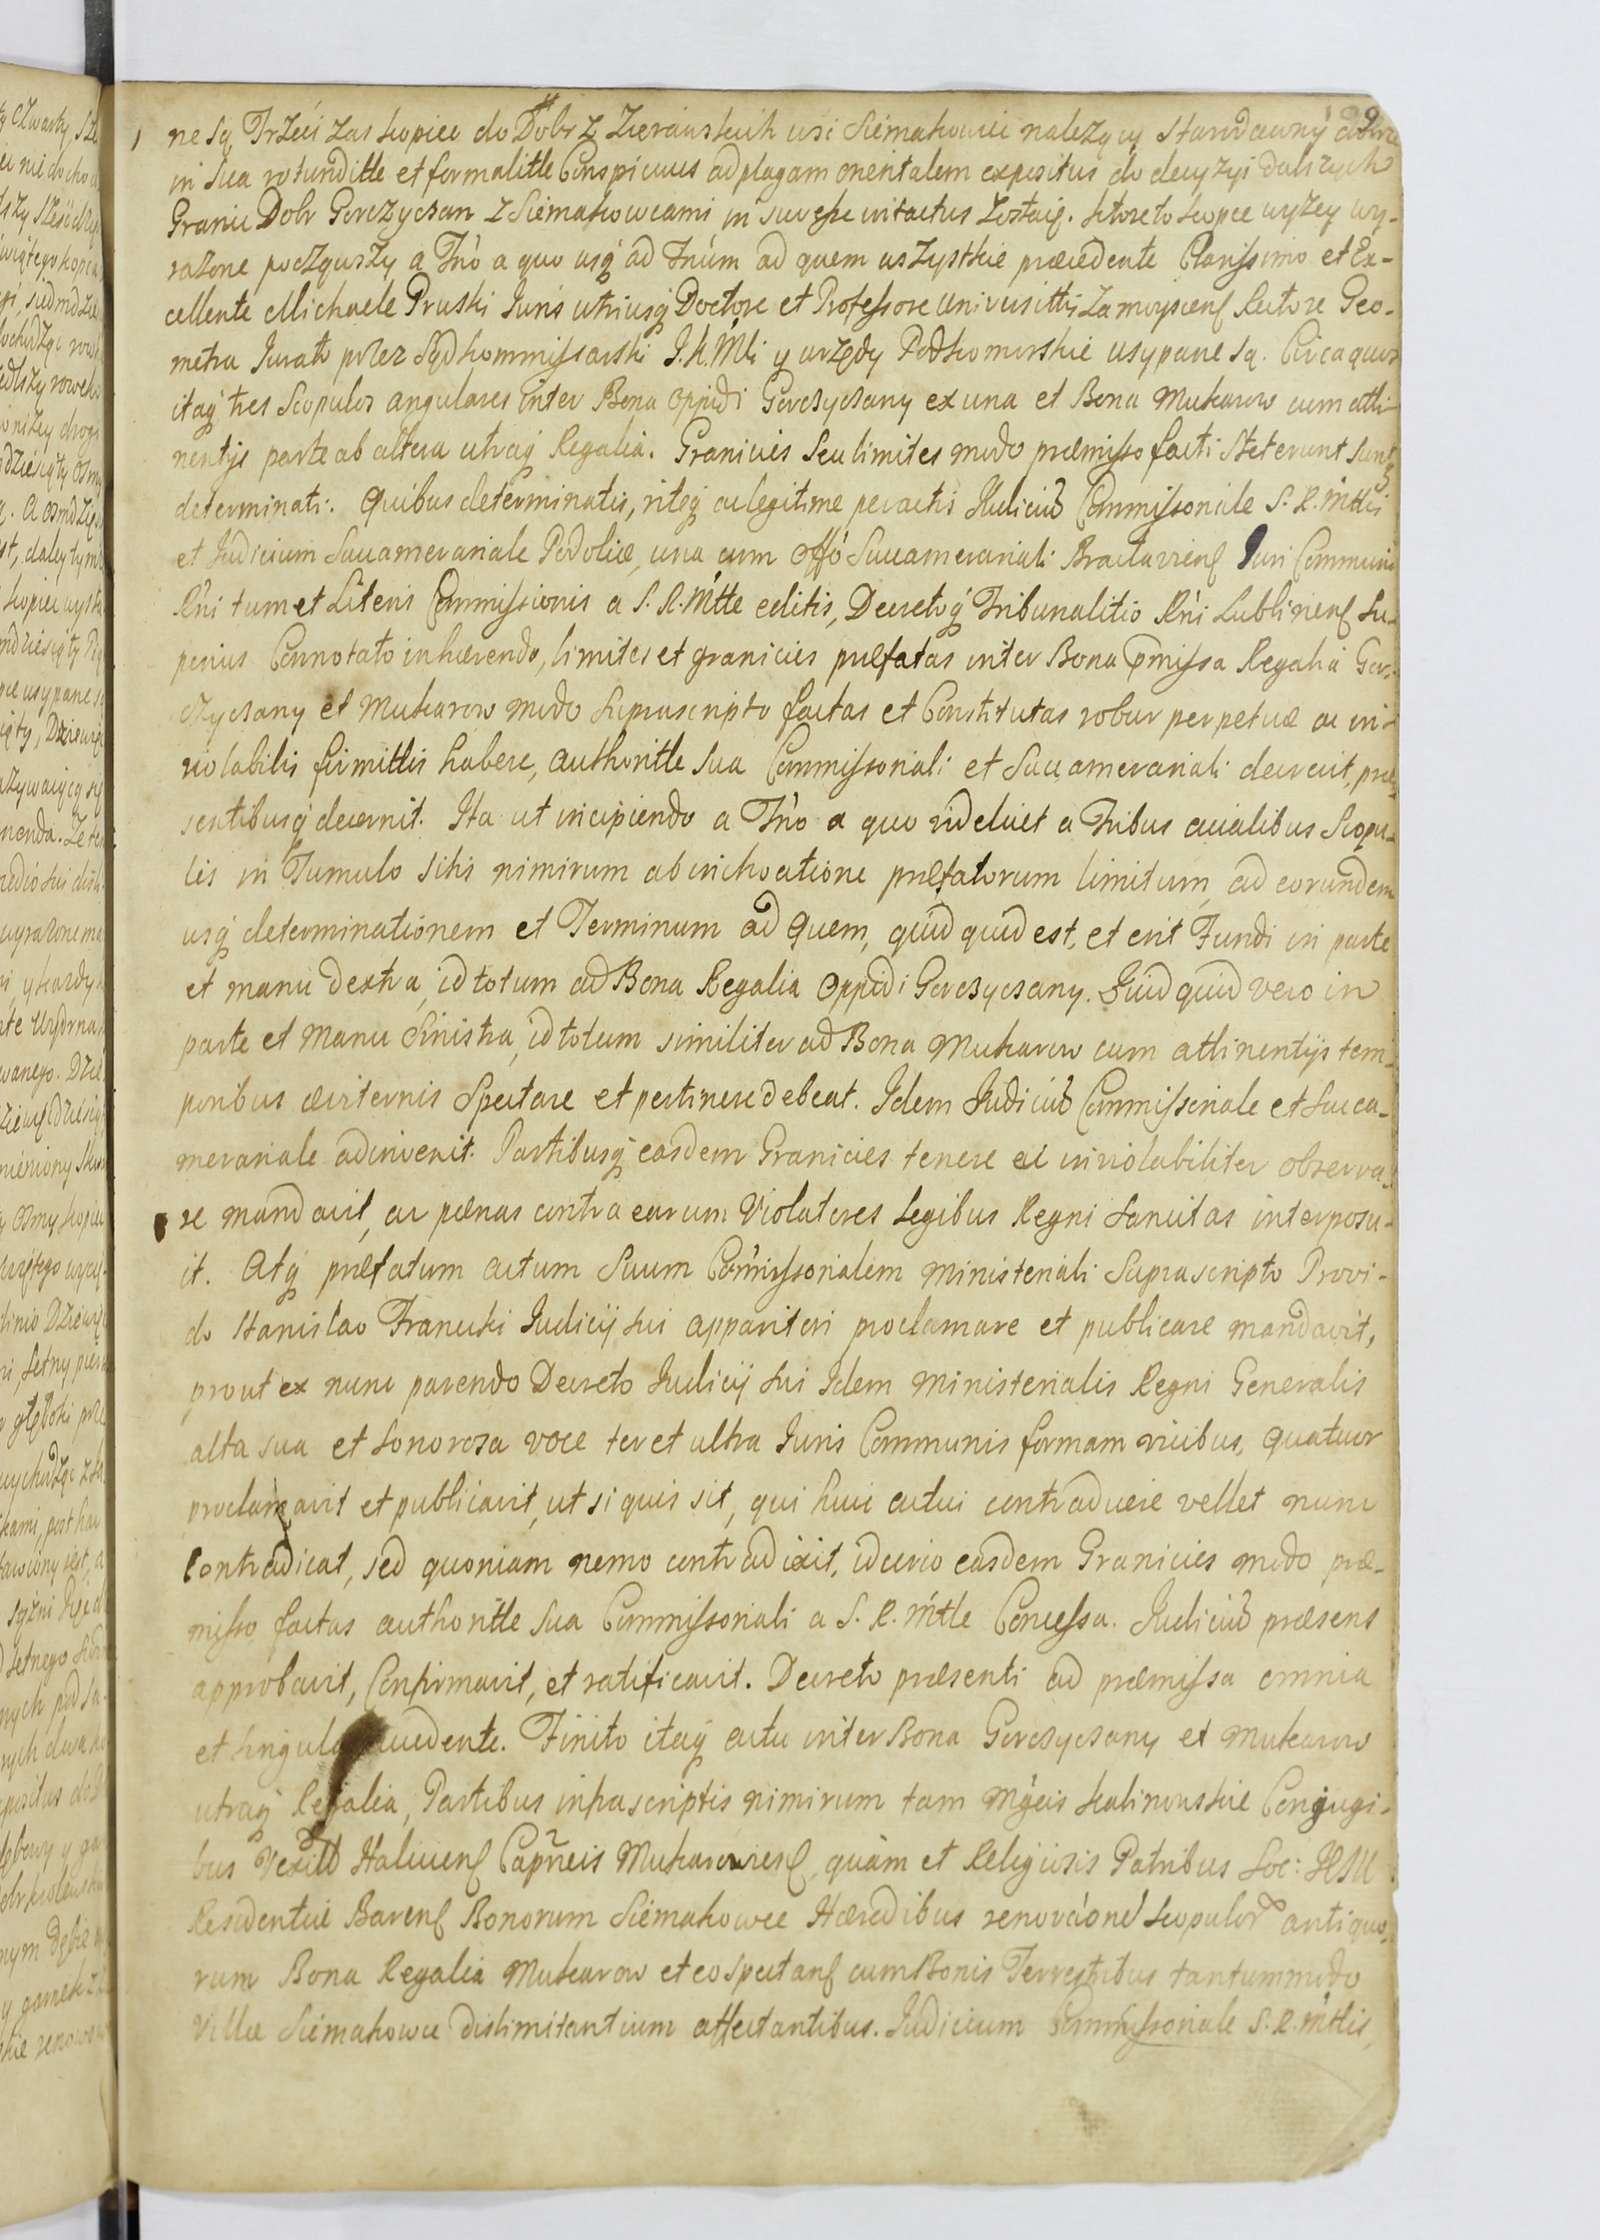 ne są, Trzeci zas kopiec do Dobr Z Zierawskich wsi Siemakowiec należący Starodawny
in Sua rotunditte et formalitte Conspicuus ad plagam orientalem expositus do decyzyi dalszych
Granic Dobr Gorczyczan z Siemakowcami in suo esse intactus Zostaię. ktore to kopce wyżey wy-
rażone począwszy a Tno a quo usq ad Tnum ad quem wszystkie præcedente Clarissimo et Ex-
cellente Michaele Pruski Juris utriusq Doctore et Professore Universittis Zamoyscens Rectore Geo-
metra Jurato przez Sąd kommissarski J.K.Mci y urzędy Podkomorskie usypane są. Circa quos
itaq tres Scopulos angulares inter Bona Oppidi Gorczyczany ex una et Bona Mukarow cum atti-
nentys parte ab altera utraq Regalia. Granicies Seu limites modo præmisso facti Steterunt Suntq
determinati. Quibus determinatis, riteq ac legitime peractis Judiciũ Commissoriale S. R. Mttis
et Judicium Succamerariale Podoliæ, una cum Offo Succamerariali Braclaviens Juri Communi
Rni tum et Literis Commissionis a S. R. Mtte editis, Decretoq Tribunalitio Rni Lublinens Su-
perius Connotato inhærendo, limites et granicies præfatas inter Bona præmissa Regalia Gor-
czyczany et Mukarow modo Suprascripto factas et Constitutas robur perpetuæ ac in-
violabilis firmittis habere, authoritte Sua Commissoriali et Succamerariali decrevit, præ-
sentibusq decernit. Ita ut incipiendo a Tno a quo videlicet a Tribus acialibus Scopu-
lis in Tumulo Sitis nimirum ab inchoatione præfatorum limitum, ad eorundem
usq determinationem et Terminum ad Quem, quid quid est, et erit Fundi in parte
et manu dextra, id totum ad Bona Regalia Oppidi Gorczyczany. Quid quid vero in
parte et Manu Sinistra, id totum similiter ad Bona Mukarow cum attinentijs tem-
poribus æviternis Spectare et pertinere debeat. Idem Judiciũ Commissoriale et Succa-
merariale adinvenit. Partibusq easdem Granicies tenere et inviolabiliter observa-
re mandavit, ac pænas contra earum Violatores Legibus Regni Sancitas interposu-
it. Atq præfatum actum Suum Commissorialem Ministeriali Suprascripto Provi-
do Stanislao Francuski Judicij Sui apparitori proclamare et publicare mandavit,
prout ex nunc parendo Decreto Judicij Sui Idem Ministerialis Regni Generalis
alta sua et Sonorosa voce ter et ultra Juris Communis formam vicibus, quatuor
proclamavit et publicavit, ut si quis sit, qui huic actui contradicere vellet nunc
Contradicat, sed quoniam nemo contradixit, idcirco easdem Granicies modo præ-
misso factas authoritte Sua Commissoriali a S. R. Mtte Concessa. Judiciũ præsens
approbavit, Confirmavit, et ratificavit. Decreto præsenti ad præmissa omnia
et singula accedente. Finito itaq actu inter Bona Gorczyczany et Mukarow
utraq Regalia, Partibus infrascriptis nimirum tam Mgcis Kalinowskie Conjugi-
bus Haliciens Capneis Mukarowiens, quàm et Religiosis Patribus Soc: JESU
Residentiæ Barens Bonorum Siemakowce Hæredibus renovãone Scopulor antiquo-
rum Bona Regalia Mukarow et eo Spectans cum Bonis Terrestribus tantummodo
Villæ Siemakowce dislimitantium affectantibus. Judicium Commissoriale S. R. Mttis